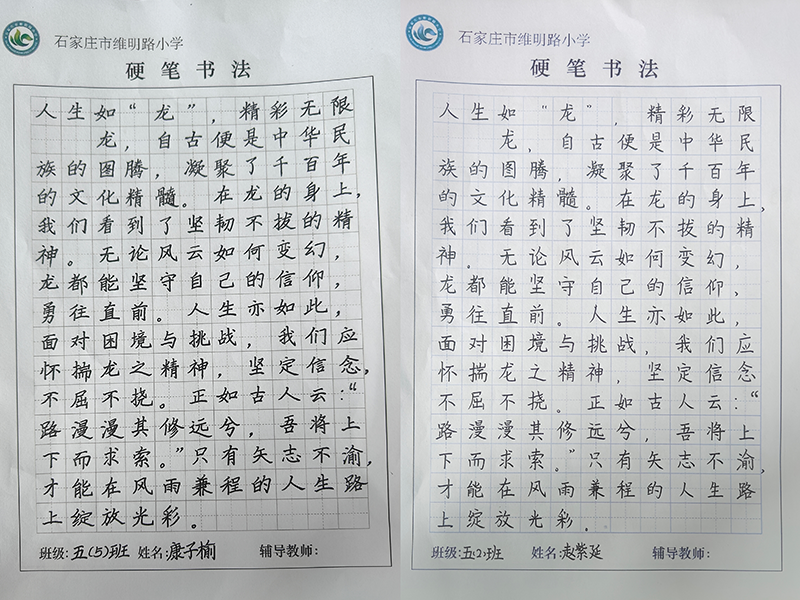 石家庄市维明路小学
硬笔书法
人生如“龙”，精彩无限
龙，自古便是中华民
族的图腾，凝聚了千百年
的文化精髓。在龙的身上，
我们看到了坚韧不拔的精
神。无论风云如何变幻，
龙都能坚守自己的信仰，
勇往直前。人生亦如此，
面对困境与挑战，我们应
怀揣龙之精神，坚定信念，
不屈不挠。正如古人云：“
路漫漫其修远兮，吾将上
下而求索。”只有矢志不渝，
才能在风雨兼程的人生路
上绽放光彩。
班级：五(5)班 姓名：康子榆 辅导教师：
石家庄市维明路小学
硬笔书法
人生如“龙”，精彩无限
龙，自古便是中华民
族的图腾，凝聚了千百年
的文化精髓。在龙的身上，
我们看到了坚韧不拔的精
神。无论风云如何变幻，
龙都能坚守自己的信仰、
勇往直前。人生亦如此，
面对困境与挑战，我们应
怀揣龙之精神，坚定信念
不屈不挠。正如古人云：“
路漫漫其修远兮，吾将上
下而求索。”只有矢志不渝，
才能在风雨兼程的人生路
上绽放光彩。
班级：五(2)班 姓名：赵紫延 辅导教师：